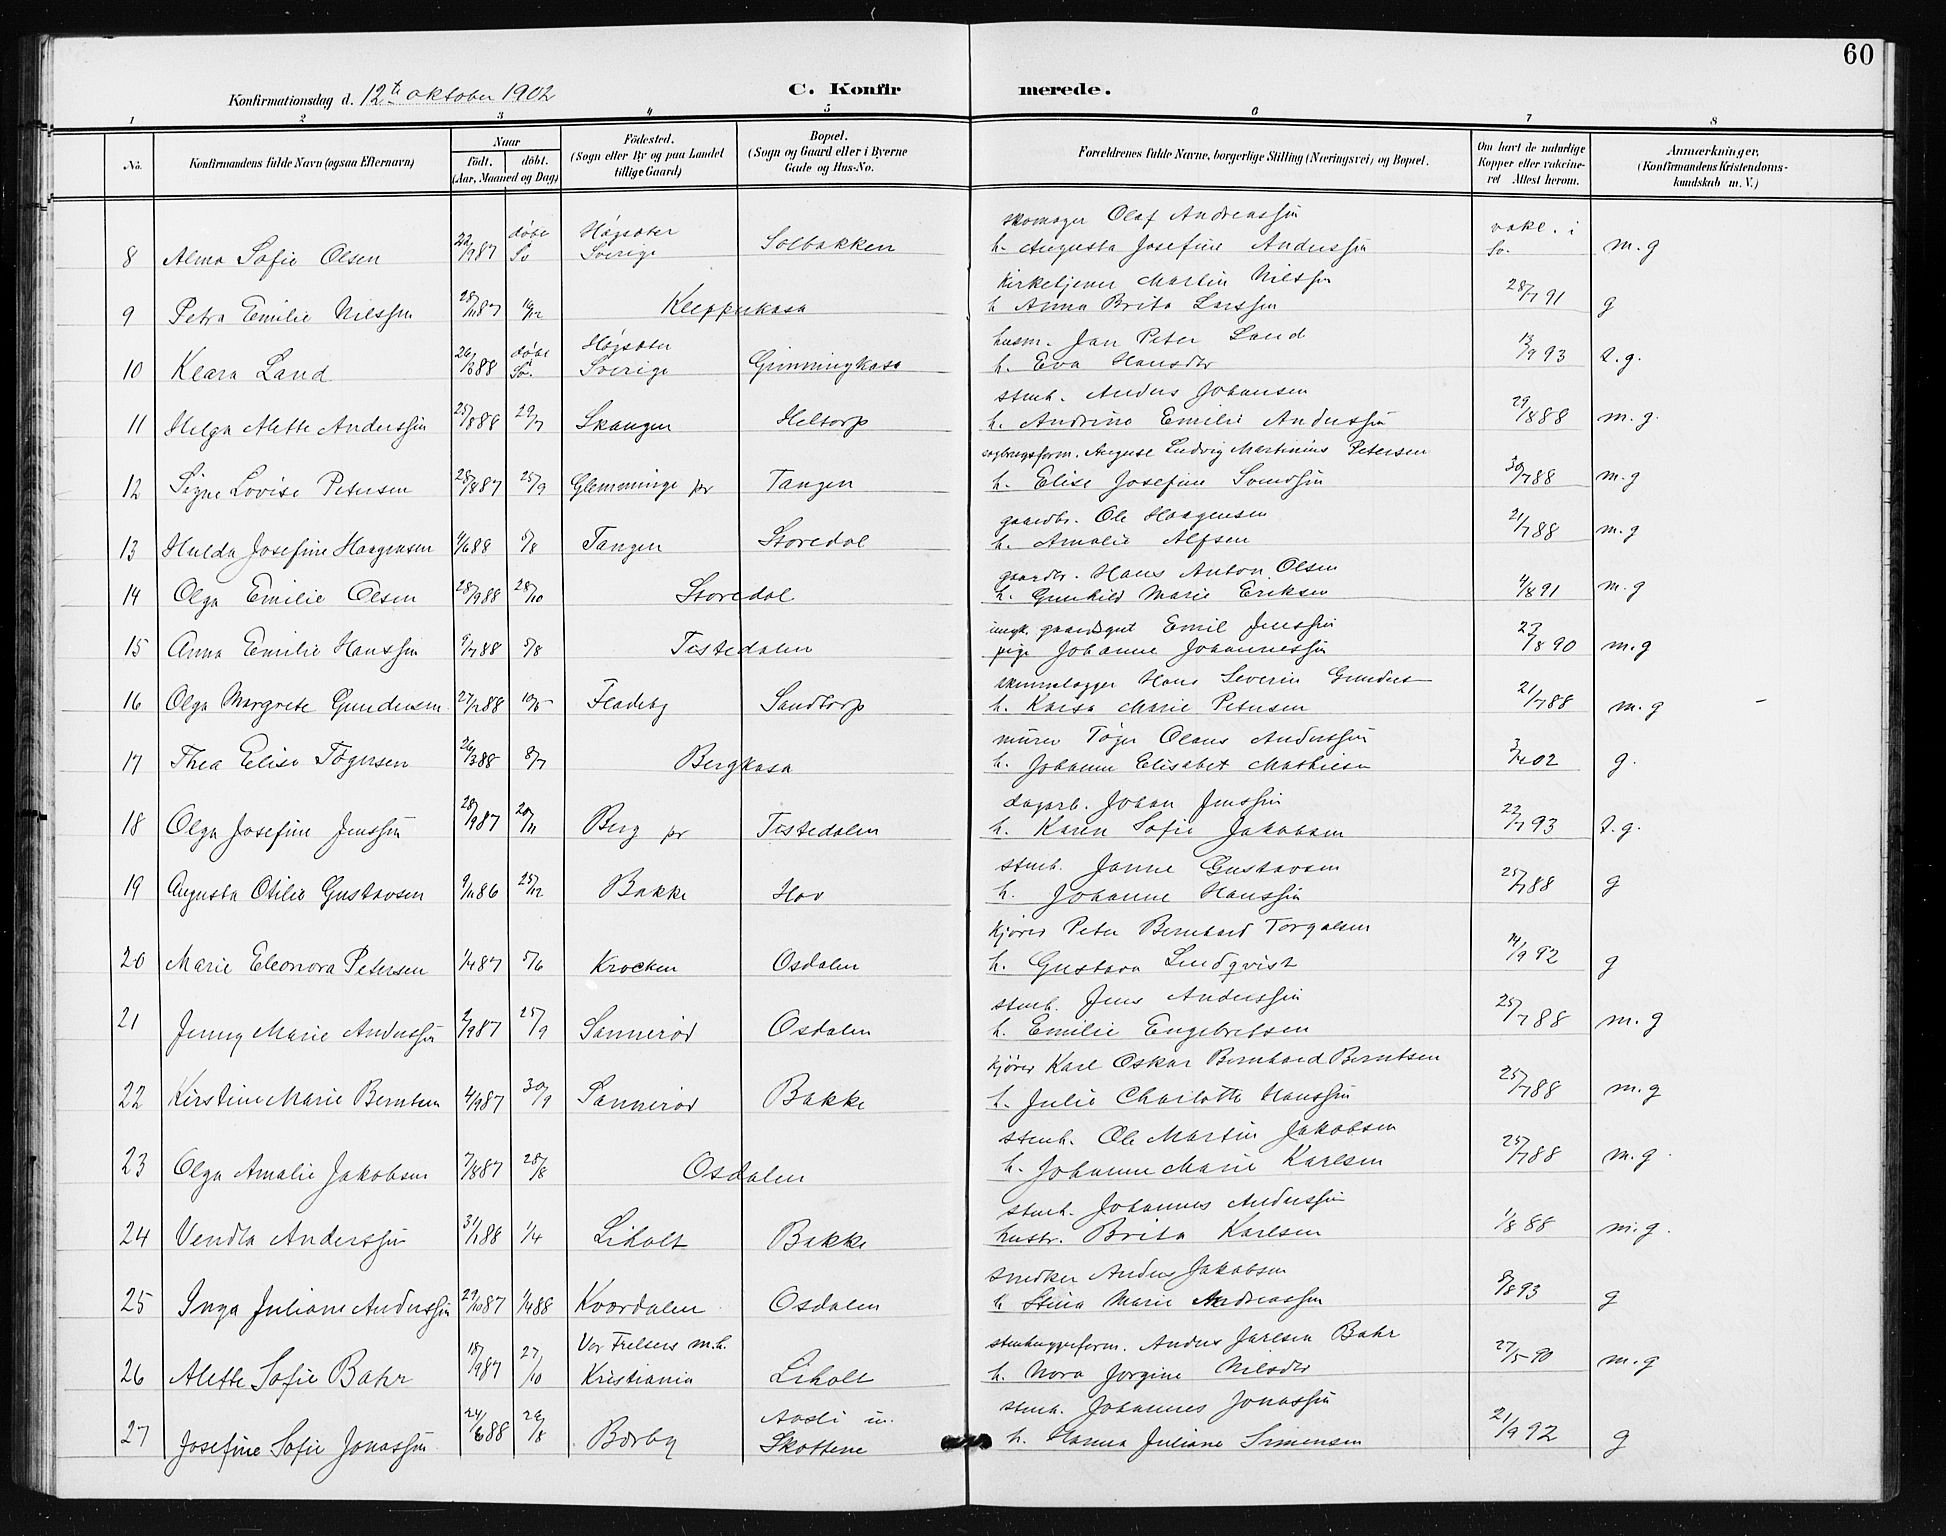 60
Konfirmationsdag d. 12te oktober 1902 C. Konfirmerede.
1 2 3 4 5 6 7 8
No. Konfirmandens fulde Navn (ogsaa Efternavn) Naar født. døbt. (Aar, Maaned og Dag) Fødested. (Sogn eller By og paa Landet tillige Gaard) Bopæl. (Sogn og Gaard eller i Byerne Gade og Hus-No. Forældrenes fulde Navne, borgerlige Stilling (Næringsvei) og Bopæl. Om havt de naturlige Kopper eller vakcineret Attest herom. Anmærkninger. (Konfirmandens Kristendomskundskab m. V.)
døbt Høgsäter skomager Olaf Andreassen vakc. i
8 Alma Sofie Olsen 22/9 87 Sv Sverige Solbakken h. Augusta Josefine Anderssen Sv. m.g
Kirketjener Martin Nilssen
9 Petra Emilie Nilssen 28/11 87 Kleppukasa h Anna Brita Larssen 28/7 91 g
døbt Høgsäter husm. Jan Peter Land
10 Klara Land 26/3 88 Sv. Sverige Grimmingkasa h. Eva Hansdtr 13/9 93 t.g.
stenh. Anders Johansen
11 Helga Alette Anderssen 29/7 Skangen Heltorp h. Andrine Emilie Anderssen 29/8 88 m.g.
sagbrugsform. August Ludvig Martinius Petersen
12 Signe Lovise Petersen 28/8 87 25/9 Glemminge pr Tangen h. Elise Josefine Svendsen 30/7 88 m.g
gaardbr. Ole Haagensen
13 Hulda Josefine Haagensen 5/8 Tangen Storedal h. Amalie Alfsen 21/7 88 m.g
gaardbr. Hans Anton Olsen
14 Olga Emilie Olsen 28/9 88 28/10 Storedal h. Gunhild Marie Eriksen 4/8 91 m.g
ungk. gaardsgut Emil Jenssen
15 Anna Emilie Hanssen 9/7 88 5/8 Tistedalen pige Johanne Johannessen 27/8 90 m.g
Hans Severin Gunders
16 Olga Margrete Gundersen 27/2 88 10/5 Fladeby Sandtorp h. Kaisa Marie Petersen 21/7 88 m.g
murer Tøger Olaus Anderssen
17 Thea Elise Tøgersen 26/3 88 8/7 Bergkasa h. Johanne Elisabet Mathisen 3/7 02 g.
dagarb. Johan Jenssen
18 Olga Josefine Jenssen 28/9 87 20/11 Berg pr Tistedalen h. Karen Sofie Jakobsen 22/7 93 t.g.
stenh. Janne Gustavsen
19 Augusta Otilie Gustavsen 9/11 86 25/12 Bakke Hov h. Johanne Hanssen 25/7 88 g
kjører Peter Bernhard Torgalsen
20 Marie Eleonora Petersen 1/4 87 5/6 Krocken Osdalen h. Gustava Lindqvist 14/9 92 g
stenh. Jens Anderssen
21 Jenny Marie Anderssen 2/9 87 25/9 Sannerød Osdalen h. Emilie Engebretsen 25/7 88 m.g
kjører Karl Oskar Bernhard Berntsen
22 Kirstine Marie Berntsen 4/9 87 30/9 Sannerød Bakke h. Julie Charlotte Hanssen 25/7 88 m.g
stenh. Ole Martin Jakobsen
23 Olga Amalie Jakobsen 7/8 87 28/8 Osdalen h. Johanne Marie Karlsen 25/7 88 m.g.
stenh. Johannes Anderssen
24 Vendla Anderssen 31/1 88 1/4 Liholt Bakke hustr. Brita Karlsen 1/8 88 m.g.
snedker Anders Jakobsen
25 Inga Juliane Anderssen 29/10 87 1/4 88 Kvordalen Osdalen h Stina Marie Andreassen 8/8 93 g
Vor Frelsers m.h. stenhuggerform. Anders Jarlsen Bahr
26 Alette Sofie Bahr 18/9 87 27/10 Kristiania Liholt h. Nora Jorgine Nilsdtr 27/5 90 m.g
Aasli u. stenh. Johannes Jonassen
27 Josefine Sofie Jonassen 24/6 88 26/8 Børby Skottene h. Hanna Juliane Simensen 21/9 92 g